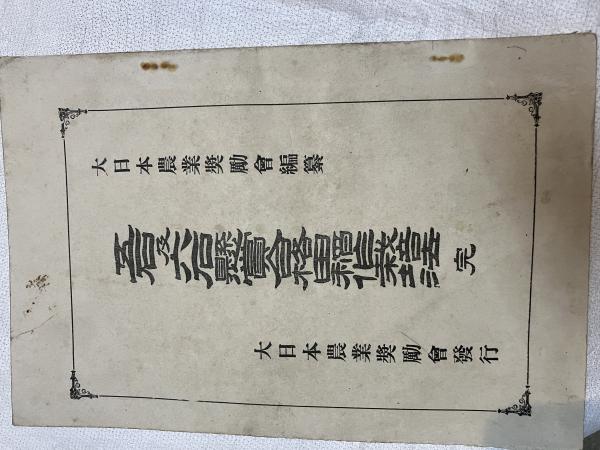 大日本農業奬勵會編纂
五石及六石懸賞合格田稻作栽培法 完
大日本農業奬勵會發行